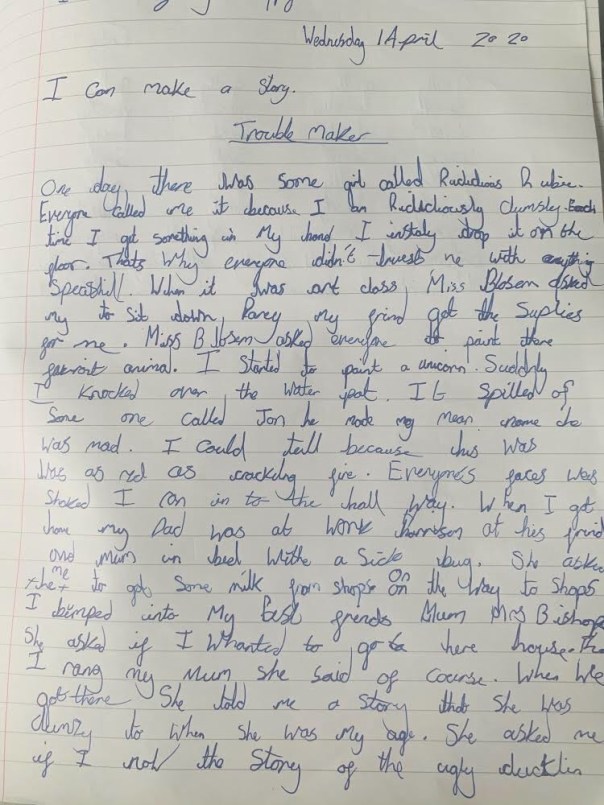 Wednesday 1 April 2020
I can make a story.
Trouble maker
One day, there was some girl called Ridiculous Rubie.
Everyone called me it because I am Ridiculously clumsley. Each
time I got something in my hand I instaly drop it on the
floor. Thats why everyone didn't trust me with anything
Speashill. When it was art class, Miss Blosem asked
my to sit down, Parcy my frind got the Suplies
for me. Miss Blosem asked everyone to paint there
favroit animal. I Started to paint a unicorn. Suddnly
I knocked over the water pot. It spilled of
Some one called Jon he made my mean name he
was mad. I could tell because his was
was as red as cracking fire. Everyones faces was
Shoked I ran in to the hall way. When I got
home my Dad was at work harrison at his frind
and mum in bed withe a Sick bug. She asked
me to got some milk from shops on the way to shops
I bumped into my best frends Mum Mrs Bishop
She asked if I whanted to go to here house. The
I rang my Mum she said of course. When we
got there She told me a story that she was
clumzy to when she was my age. She asked me
if I now the story of the ugly ducklin